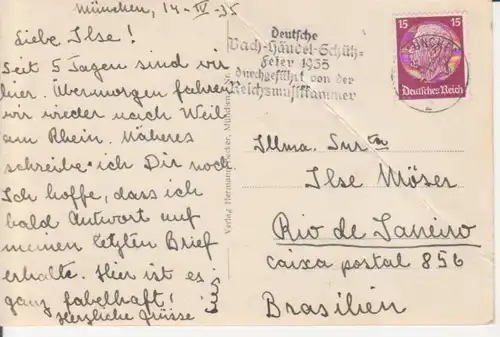 München, 14-IV-35
Liebe Ilse!
Seit 5 Tagen sind wir
hier. Übermorgen fahren
wir wieder nach Weil
am Rhein. Näheres
schreibe ich Dir noch.
Ich hoffe, dass ich
bald Antwort auf
meinen letzten Brief
erhalte. Hier ist es
ganz fabelhaft!
Herzliche Grüsse
Verlag Hermann München
Deutsche
Bach-Händel-Schütz-
Feier 1935
durchgeführt von der
Reichsmusikkammer
15 15
Deutsches Reich
MÜNCHEN
Illma. Snrta
Ilse Möser
Rio de Janeiro
caixa postal 856
Brasilien